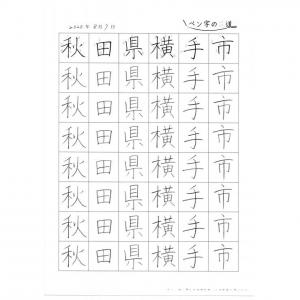 2020年8月7日
ペン字の道
秋田県横手市
秋田県横手市
秋田県横手市
秋田県横手市
秋田県横手市
秋田県横手市
秋田県横手市
秋田県横手市